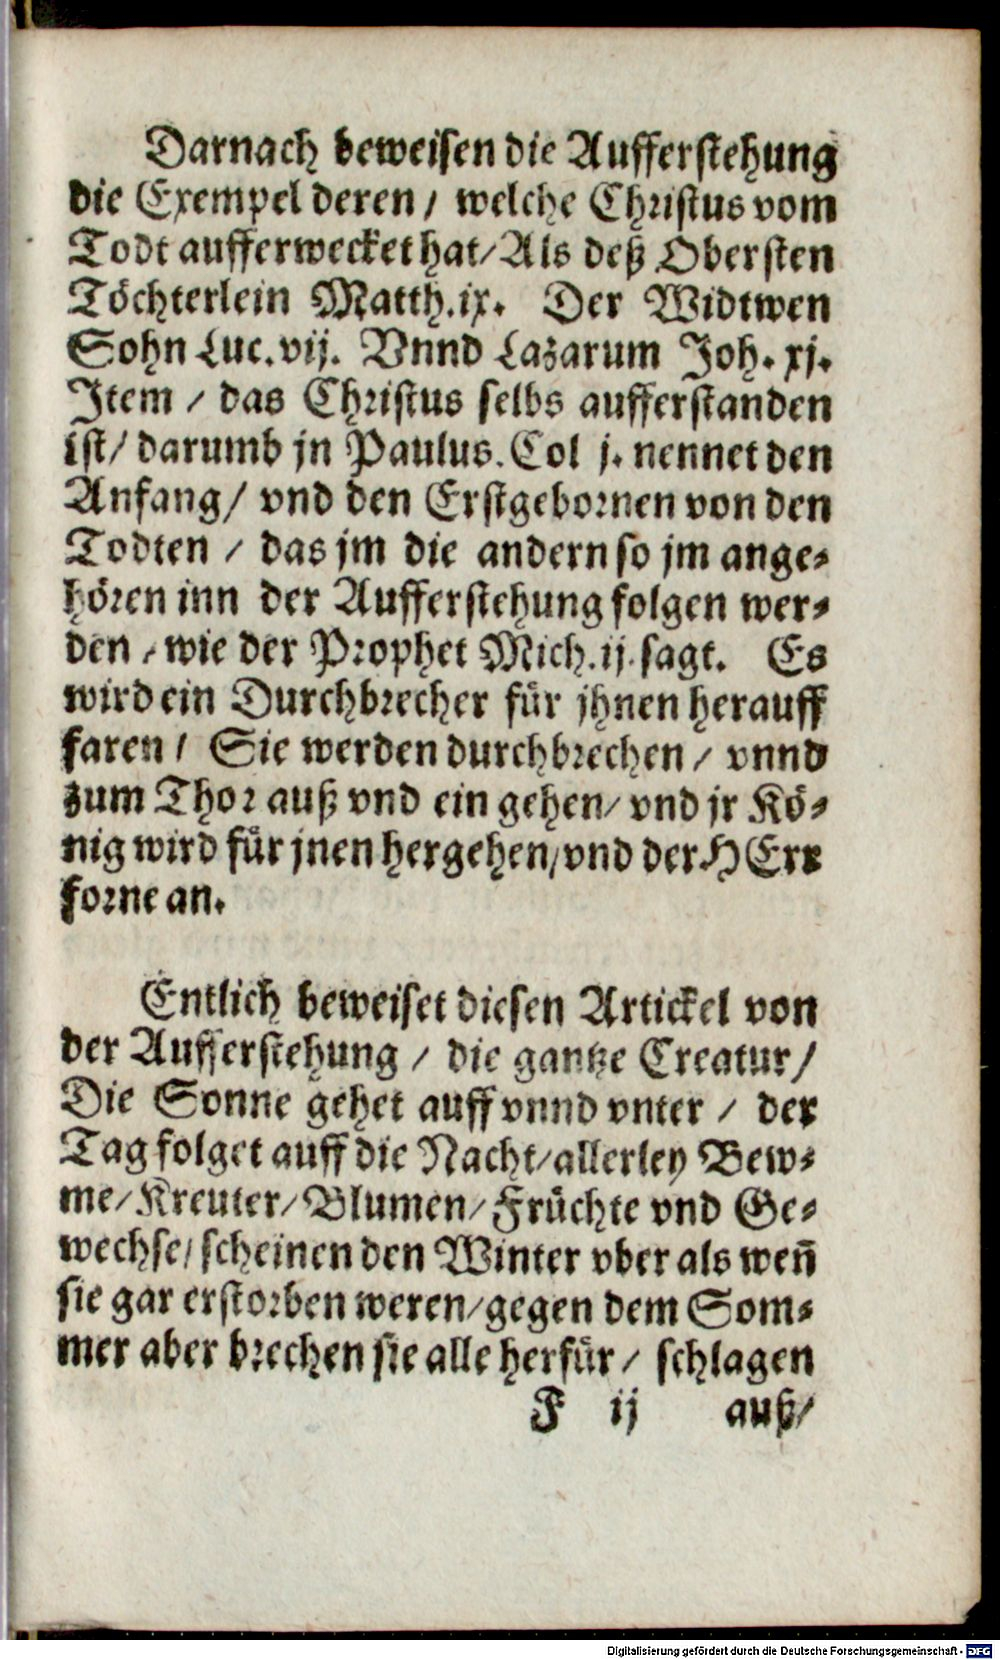 Darnach beweisen die Aufferstehung
die Exempel deren / welche Christus vom
Todt aufferwecket hat / Als deß Obersten
Töchterlein Matth. ix. Der Widtwen
Sohn Luc. vij. Vnnd Lazarum Joh. xj.
Item / das Christus selbs aufferstanden
ist / darumb jn Paulus. Col j. nennet den
Anfang / vnd den Erstgebornen von den
Todten / das jm die andern so jm ange-
hören inn der Aufferstehung folgen wer-
den / wie der Prophet Mich. ij. sagt. Es
wird ein Durchbrecher für jhnen herauff
faren / Sie werden durchbrechen / vnnd
zum Thor auß vnd ein gehen / vnd jr Kö-
nig wird für jnen hergehen / vnd der HErr
forne an.
Entlich beweiset diesen Artickel von
der Aufferstehung / die gantze Creatur /
Die Sonne gehet auff vnnd vnter / der
Tag folget auff die Nacht / allerley Bew-
me / Kreuter / Blumen / Früchte vnd Ge-
wechse / scheinen den Winter vber als wen̄
sie gar erstorben weren / gegen dem Som-
mer aber brechen sie alle herfür / schlagen
F ij auß /
Digitalisierung gefördert durch die Deutsche Forschungsgemeinschaft - DFG